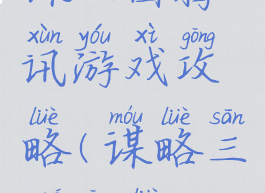 xùn yóu xì gōng
讯游戏攻
lüè móu lüè sān
略(谋略三